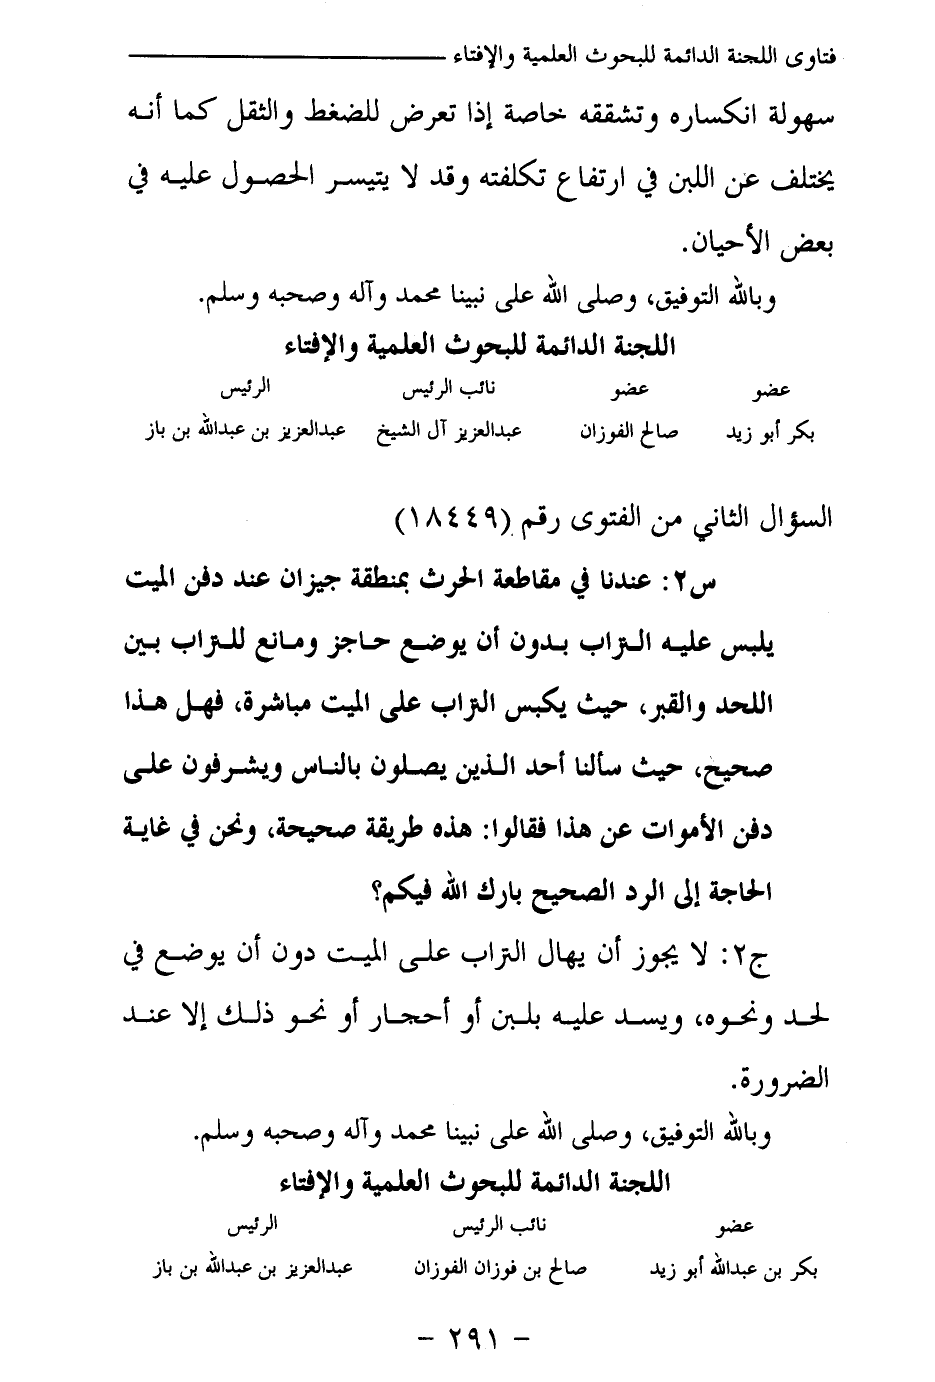 فتاوى اللجنة الدائمة للبحوث العلمية والإفتاء
سهولة انكساره وتشققه خاصة إذا تعرض للضغط والثقل كما أنه
يختلف عن اللبن في ارتفاع تكلفته وقد لا يتيسر الحصول عليه في
بعض الأحيان.
وبالله التوفيق، وصلى الله على نبينا محمد وآله وصحبه وسلم.
اللجنة الدائمة للبحوث العلمية والإفتاء
عضو عضو نائب الرئيس الرئيس
بكر أبو زيد صالح الفوزان عبدالعزيز آل الشيخ عبدالعزيز بن عبدالله بن باز
السؤال الثاني من الفتوى رقم (١٨٤٤٩)
س٢: عندنا في مقاطعة الحرث بمنطقة جيزان عند دفن الميت
يلبس عليه التراب بدون أن يوضع حاجز ومانع للتراب بين
اللحد والقبر، حيث يكبس التراب على الميت مباشرة، فهل هذا
صحيح، حيث سألنا أحد الذين يصلون بالناس ويشرفون على
دفن الأموات عن هذا فقالوا: هذه طريقة صحيحة، ونحن في غاية
الحاجة إلى الرد الصحيح بارك الله فيكم؟
ج٢: لا يجوز أن يهال التراب على الميت دون أن يوضع في
لحد ونحوه، ويسد عليه بلبن أو أحجار أو نحو ذلك إلا عند
الضرورة.
وبالله التوفيق، وصلى الله على نبينا محمد وآله وصحبه وسلم.
اللجنة الدائمة للبحوث العلمية والإفتاء
عضو نائب الرئيس الرئيس
بكر بن عبدالله أبو زيد صالح بن فوزان الفوزان عبدالعزيز بن عبدالله بن باز
- ٢٩١ -